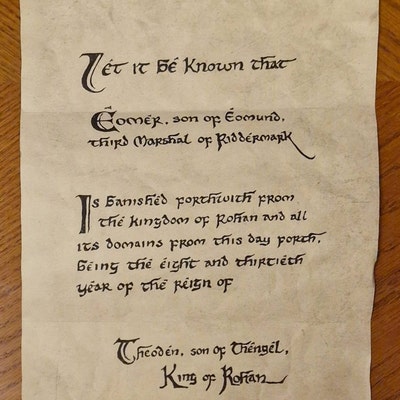 Let it be known that
Éomer, son of Éomund,
third Marshal of Riddermark
Is banished forthwith from
the kingdom of Rohan and all
its domains from this day forth,
being the eight and thirtieth
year of the reign of
Theoden, son of Thengel,
King of Rohan